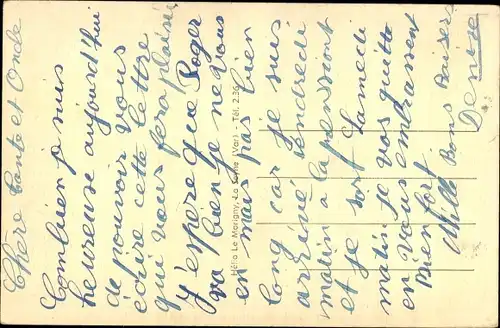 Chère Tante et Oncle
Combien je suis
heureuse aujourd'hui
de pouvoir vous
écrire cette lettre
qui vous fera plaisir
J'espère que Roger
va bien je ne vous
en mais pas bien
long car je suis
arrivé vendredi
matin a la pension
et je sort Samedi
matin je vous quitte
en vous embrassant
Bien fort
Mille Bons Baisers
Denise
Hélio Le Marigny, La Seyne (Var) - Tél. 2.36